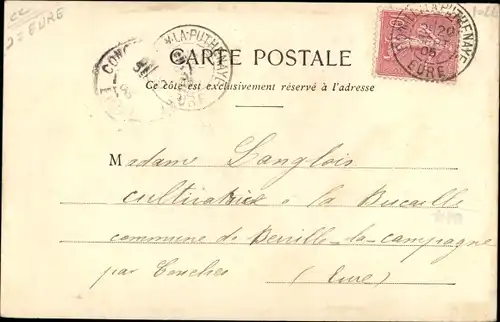 = EURE
CARTE POSTALE
Ce côté est exclusivement réservé à l'adresse
LA-PUTHENAYE
EURE
LA-PUTHENAYE
20
EURE
CONC
Madame Langlois
cultivatrice à la Bucaille
commune de Berville-la-campagne
par Conches (Eure)